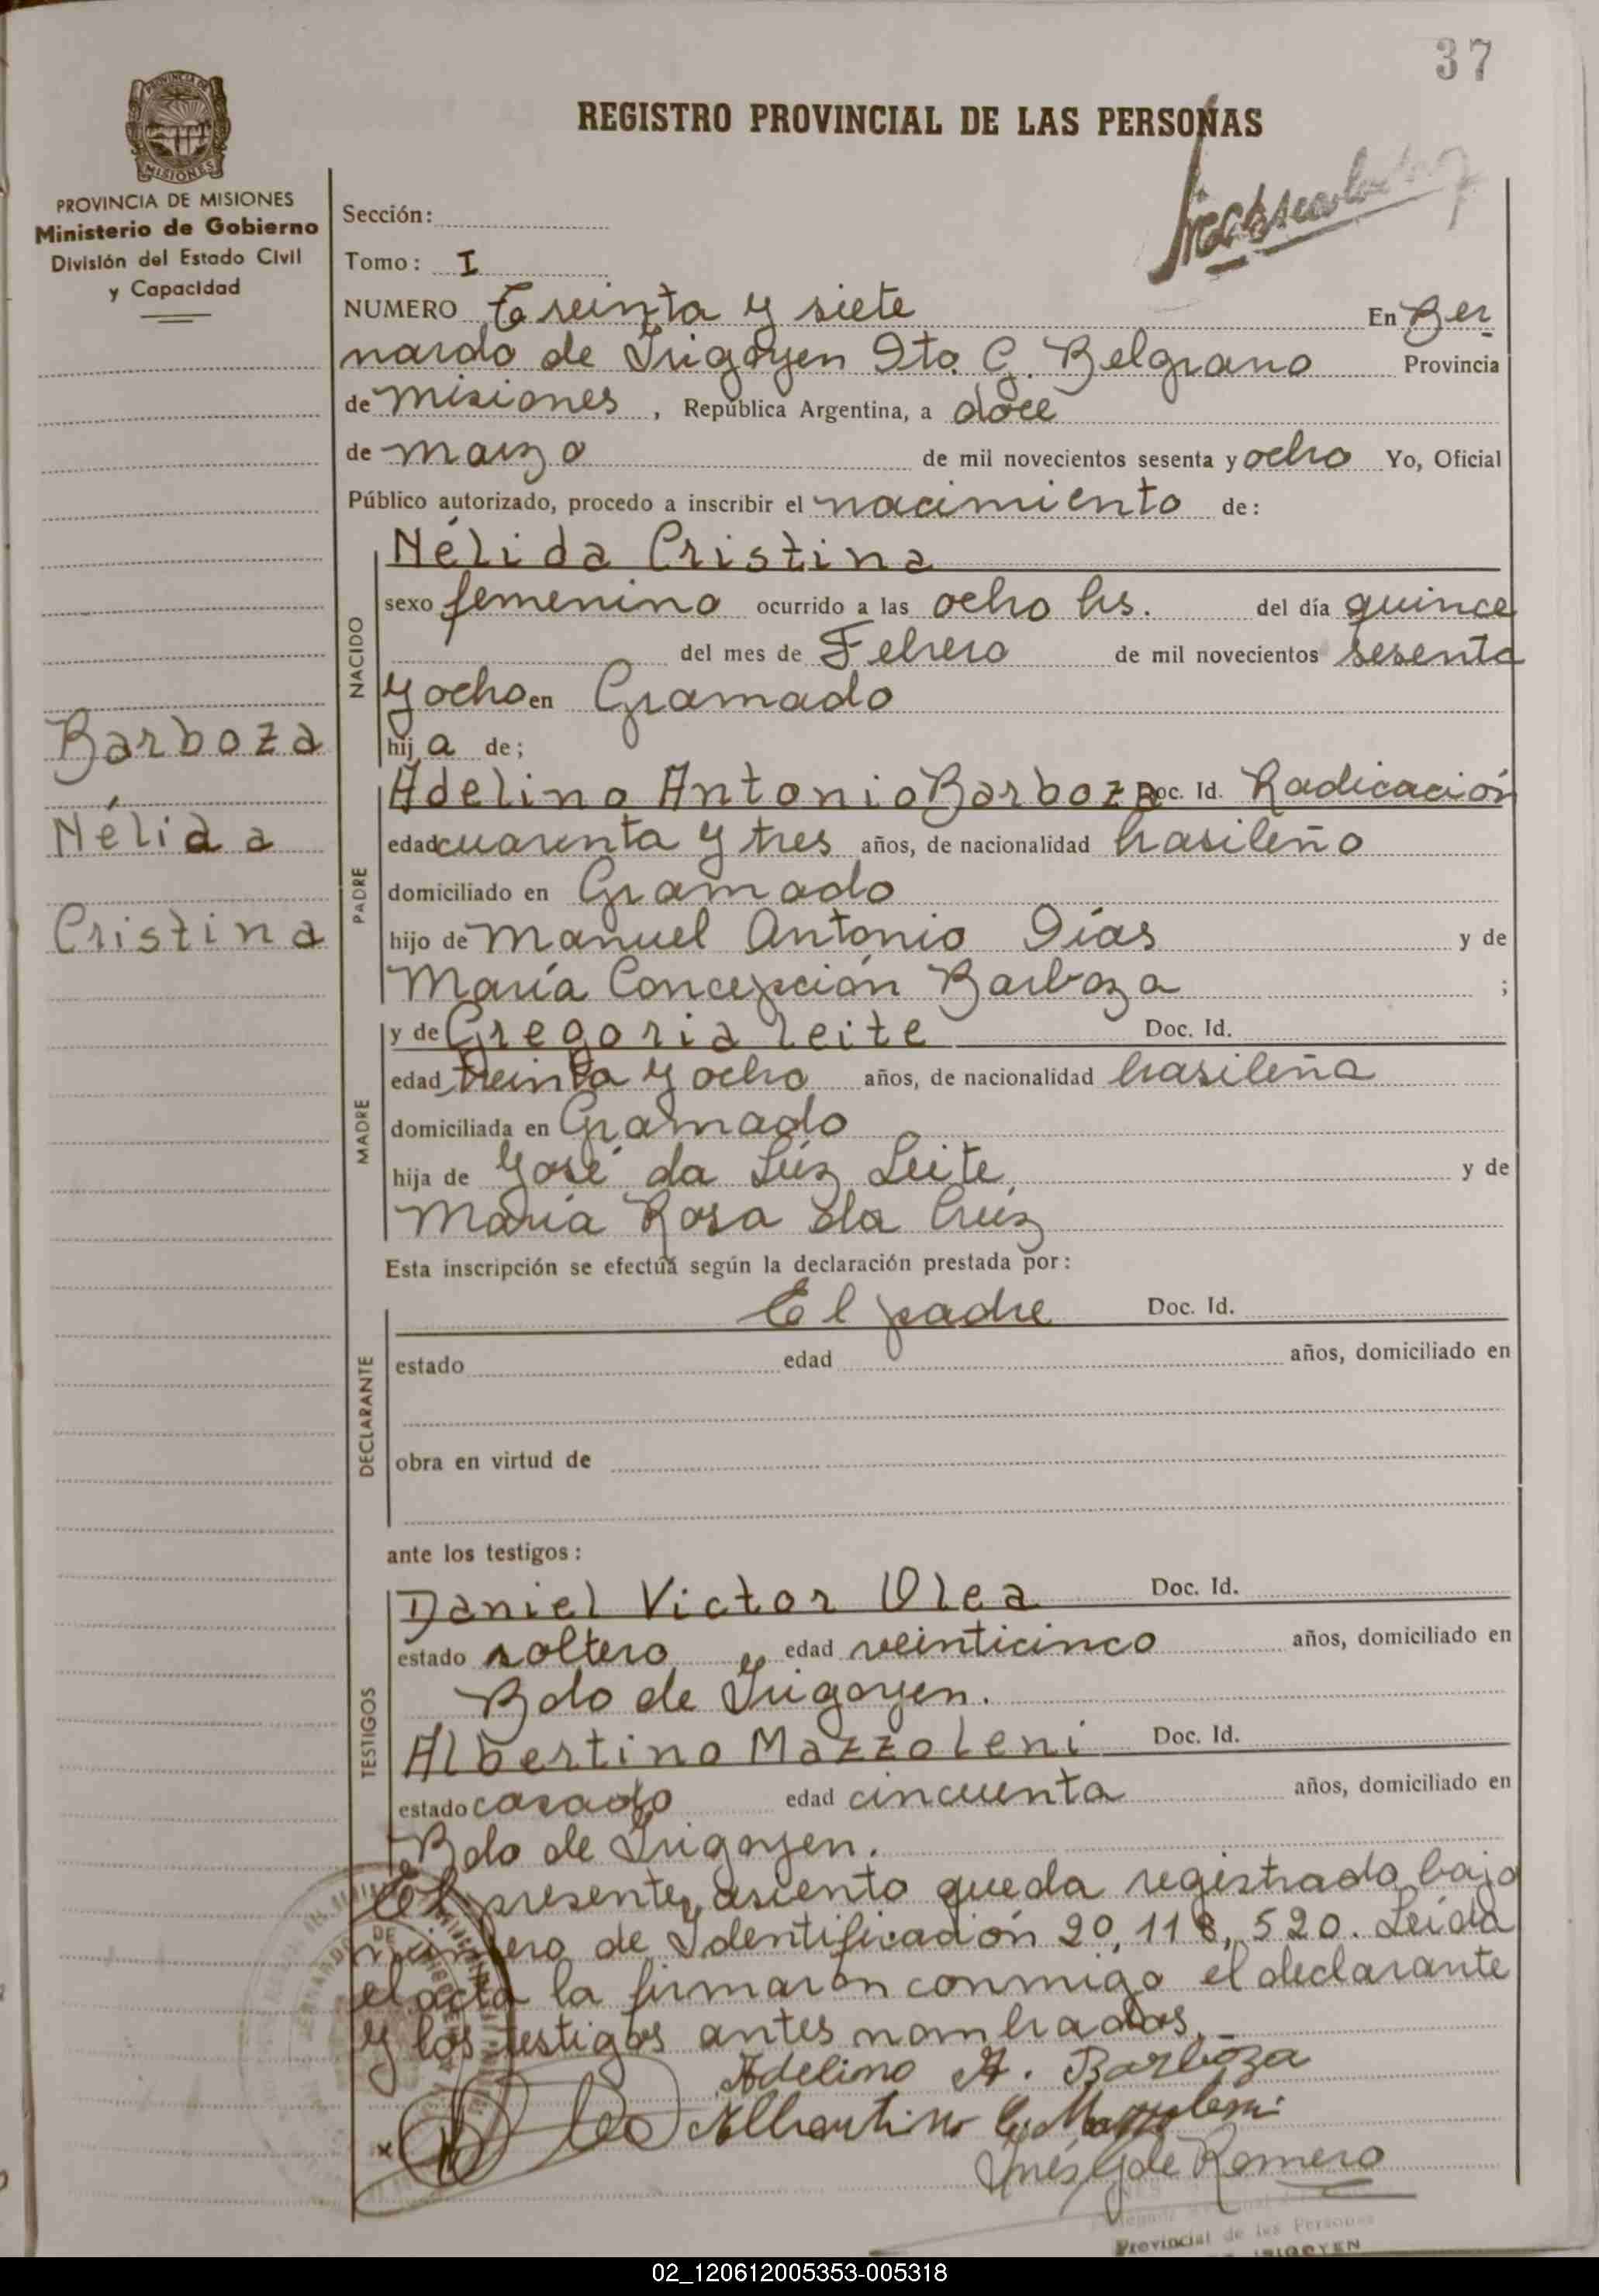 37
REGISTRO PROVINCIAL DE LAS PERSONAS
PROVINCIA DE
MISIONES
PROVINCIA DE MISIONES
Ministerio de Gobierno
División del Estado Civil
y Capacidad
Sección:
Tomo: I
NUMERO Treinta y siete En Ber
nardo de Irigoyen Dto. G. Belgrano Provincia
de misiones, República Argentina, a doce
de marzo de mil novecientos sesenta y ocho Yo, Oficial
Público autorizado, procedo a inscribir el nacimiento de:
NACIDO
Nélida Cristina
sexo femenino ocurrido a las ocho hs. del día quince
del mes de Febrero de mil novecientos sesenta
y ocho en Gramado
hija de;
Barboza
Nélida
Cristina
PADRE
Adelino Antonio Barboza Doc. Id. Radicación
edad cuarenta y tres años, de nacionalidad brasileño
domiciliado en Gramado
hijo de Manuel Antonio Días y de
María Concepción Barboza ;
MADRE
y de Gregoria Leite Doc. Id.
edad treinta y ocho años, de nacionalidad brasileña
domiciliada en Gramado
hija de José da Lúz Leite, y de
María Rosa da Cruz
Esta inscripción se efectúa según la declaración prestada por:
DECLARANTE
El padre Doc. Id.
estado edad años, domiciliado en
obra en virtud de
ante los testigos:
TESTIGOS
Daniel Victor Olea Doc. Id.
estado soltero edad veinticinco años, domiciliado en
Bdo de Irigoyen.
Albertino Mazzoleni Doc. Id.
estado casado edad cincuenta años, domiciliado en
Bdo de Irigoyen.
El presente asiento queda registrado bajo
número de Identificación 20,118,520. Leída
el acta la firmaron conmigo el declarante
y los testigos antes nombrados.
Adelino A. Barboza
Albertino Mazzoleni
Inés de Romero
Provincial de las Personas
IRIGOYEN
02_120612005353-005318